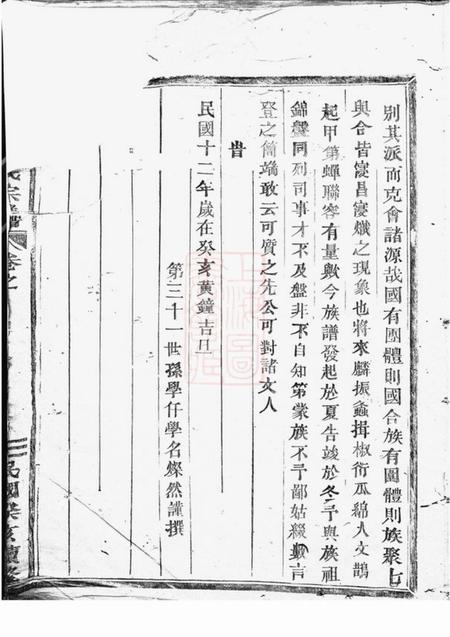 別其派而克會諸源哉國有團體則國合族有團體則族聚七
與合皆寖昌寖熾之現象也將來麟振螽揖椒衍瓜綿人文鵲
起甲第蟬聯容有量歟今族譜發起於夏告竣於冬予與族祖
錦盤同列司事才不及盤非不自知第蒙族不予鄙姑綴數言
登之簡端敢云可質之先公可對諸文人
旹
民國十二年歲在癸亥黃鐘吉旦
第三十一世孫學仟學名燦然謹撰
宗譜
卷之
民國癸亥